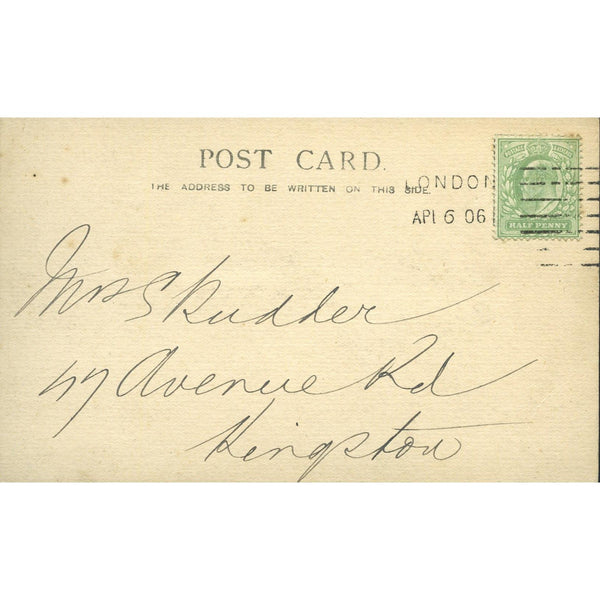 POST CARD.
THE ADDRESS TO BE WRITTEN ON THIS SIDE.
LONDON
AP 6 06
POSTAGE REVENUE
HALF PENNY
Mrs Rudder
47 Avenue Rd
Kingston